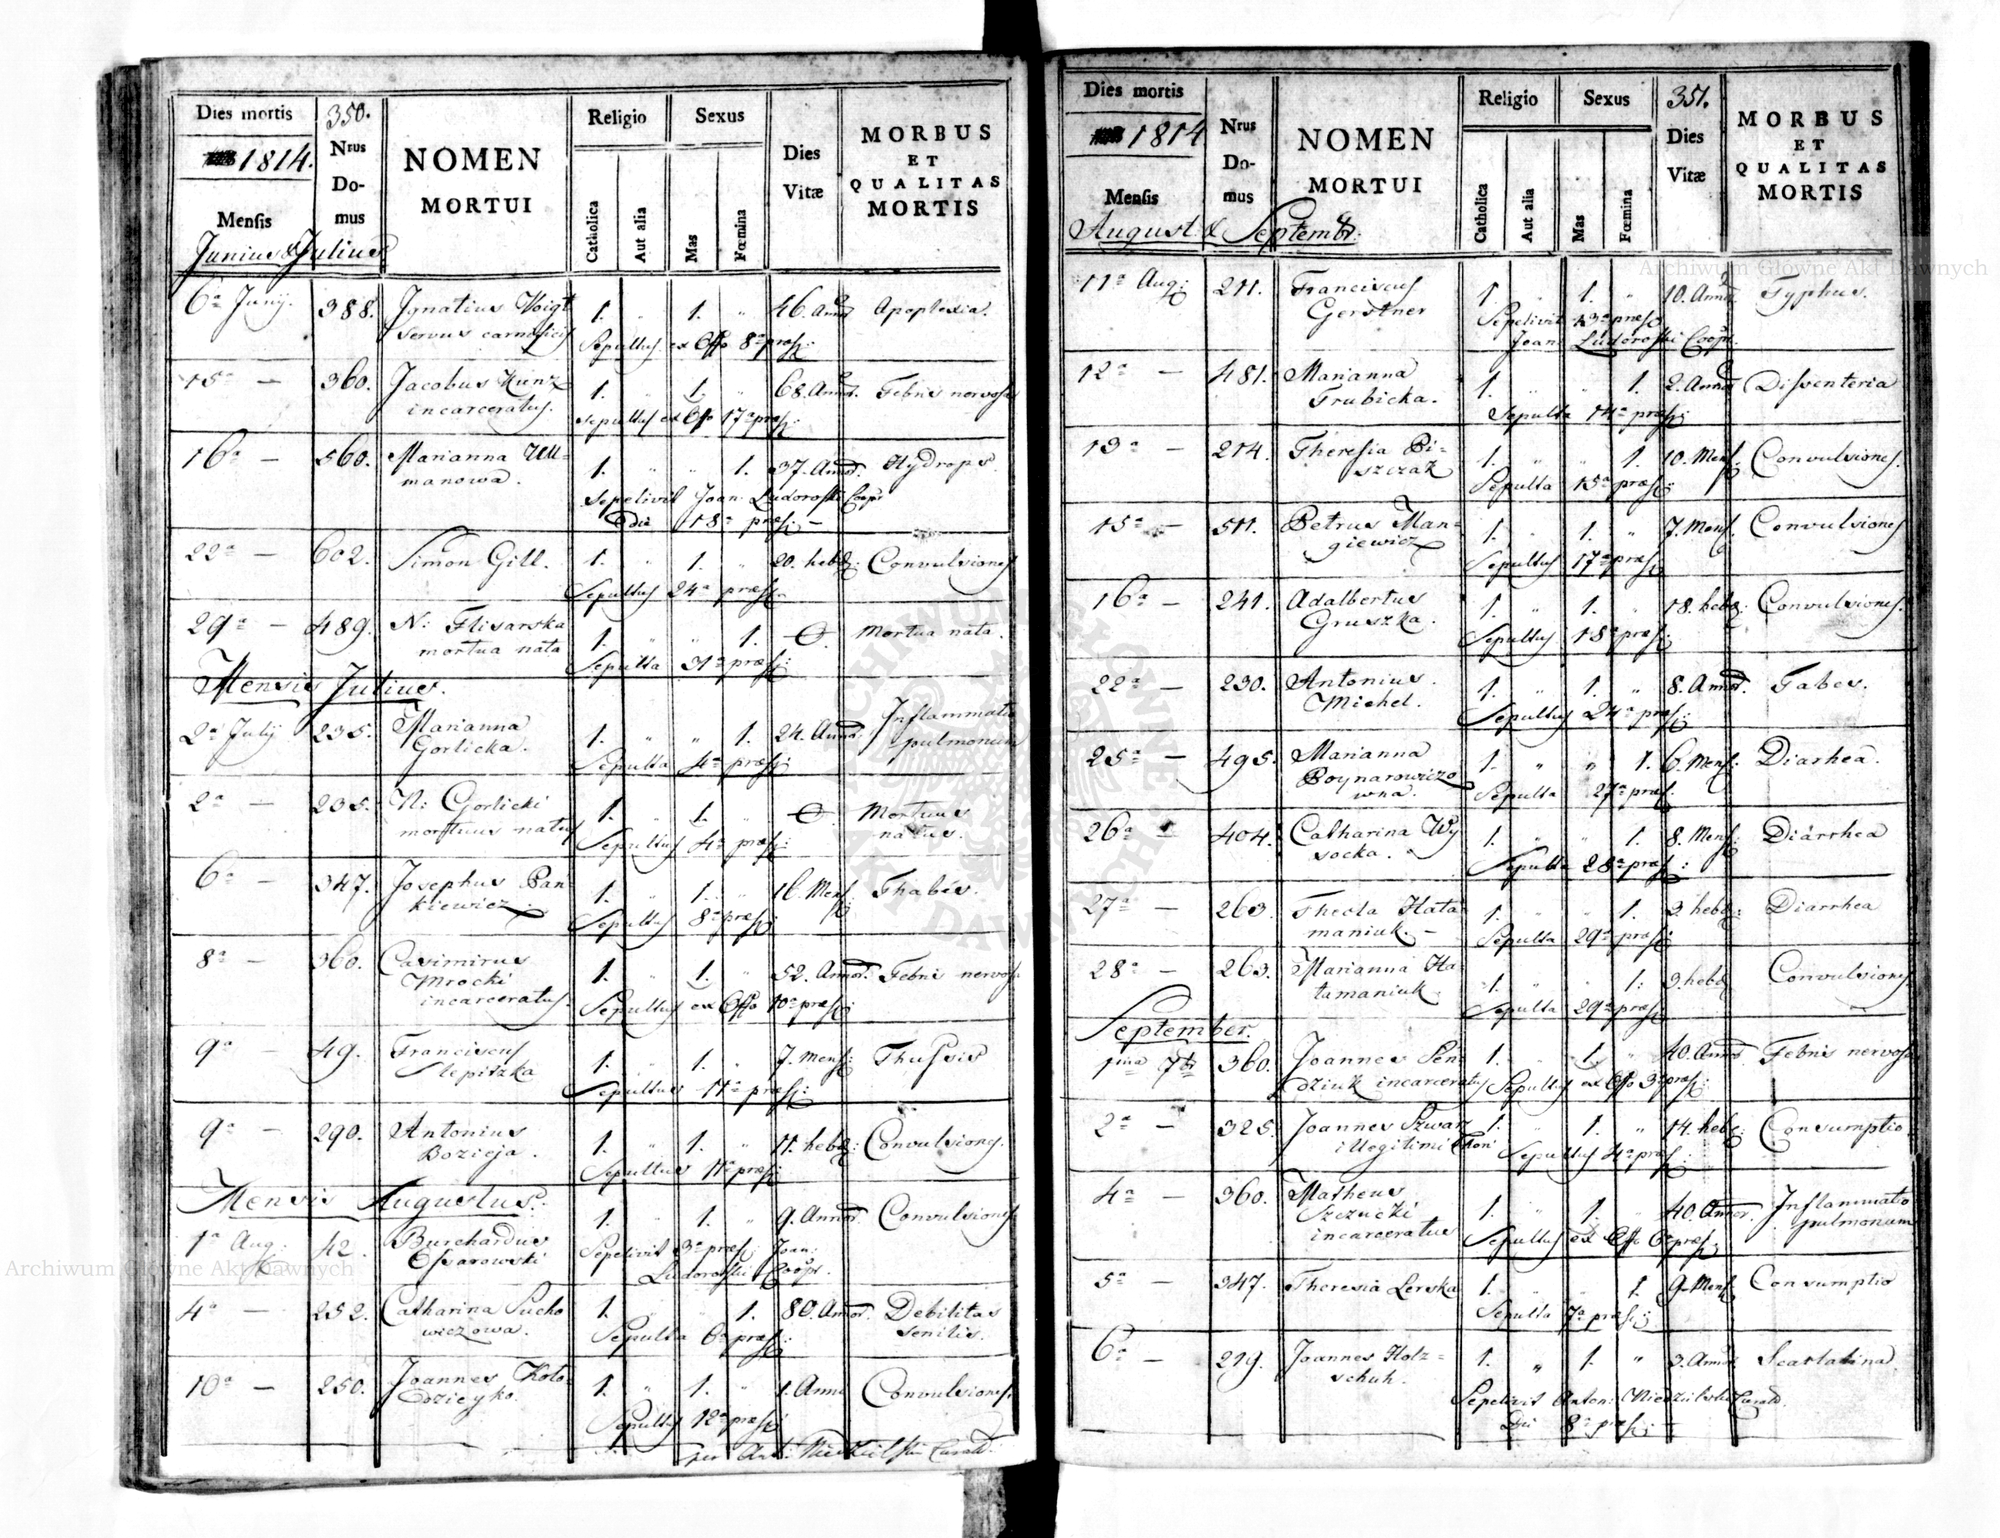 Dies mortis
350.
Religio
Sexus
1814.
Nrus
Do-
mus
NOMEN
MORTUI
Dies
Vitæ
MORBUS
ET
QUALITAS
MORTIS
Mensis
Catholica
Aut alia
Mas
Fœmina
Junius & Julius
6ª Junij. 388. Ignatius Voigt 1. " 1. " 46. Annor. Apoplexia.
servus carnificis Sepultus ex Offo 8ª præs:
15ª — 360. Jacobus Kunz 1. " 1. " 68. Annor. Febris nervosa
incarceratus. Sepultus ex Offo 17ª præs:
16ª — 560. Marianna Ull- 1. " " 1. 37. Annor. Hydrops.
manowa. Sepelivit Joan. Ludoroski Coop:
die 18ª præs: —
22ª — 602. Simon Gill. 1. " 1. " 20. hebd: Convulsiones
Sepultus 24ª præs:
29ª — 489. N: Flisarska 1. " " 1. Mortua nata.
mortua nata Sepulta 31ª præs:
Mensis Julius.
2ª July 235. Marianna 1. " " 1. 24. Annor. Inflammatio
Gorlicka. Sepulta 4ª præs: pulmonum
2ª — 235. N: Gorlicki 1. " 1. " Mortuus
mortuus natus Sepultus 4ª præs: natus.
6ª — 347. Josephus Ban- 1. " 1. " 16. Mens: Thabes.
kiewicz. Sepultus 8ª præs:
8ª — 360. Casimirus 1. " 1. " 52. Annor. Febris nervos.
Mrocki
incarceratus. Sepultus ex Offo 10ª præs:
9ª — 49. Franciscus 1. " 1. " 7. Mens: Thussis
Slepitzka Sepultus 11ª præs:
9ª — 290. Antonius 1. " 1. " 11. hebd: Convulsiones.
Bozieja. Sepultus 11ª præs:
Mensis Augustus.
1ª Aug: 42. Burchardus 1. " 1. " 9. Annor. Convulsiones
Ossarowski Sepelivit 3ª præs: Joan:
Ludoroski Coop:
4ª — 252. Catharina Sucho 1. " " 1. 80. Annor. Debilitas
wiczowa. Sepulta 6ª præs: senilis.
10ª — 250. Joannes Koło- 1. " 1. " 1. Anni Convulsiones.
dzieyko. Sepultus 12ª præs:
per Ant: Niedzielski Curad:
Dies mortis
Religio
Sexus
351.
1814
Nrus
Do-
mus
NOMEN
MORTUI
Dies
Vitæ
MORBUS
ET
QUALITAS
MORTIS
Mensis
Catholica
Aut alia
Mas
Fœmina
August & Septembr:
11ª Aug: 211. Franciscus 1. " 1. " 10. Annor. Typhus.
Gerstner Sepelivit 13ª præs:
Joan Ludoroski Coop:
12ª — 481. Marianna 1. " " 1. 2. Annor. Dissenteria
Trubicka. Sepulta 14ª præs:
13ª — 214. Theresia Bi- 1. " " 1. 10. Mens: Convulsiones.
szczak Sepulta 15ª præs:
15ª — 511. Petrus Man- 1. " 1. " 7. Mens: Convulsiones
giewicz Sepultus 17ª præs:
16ª — 241. Adalbertus 1. " 1. " 18. hebd: Convulsiones.
Gruszka. Sepultus 18ª præs:
22ª — 230. Antonius 1. " 1. " 8. Annor. Tabes.
Michel. Sepultus 24ª præs:
25ª — 495. Marianna 1. " " 1. 6. Mens: Diarhea.
Boynarowiczo
wna. Sepulta 27ª præs:
26ª 404. Catharina Wy 1. " " 1. 8. Mens: Diarrhea
socka. Sepulta 28ª præs:
27ª — 263. Thecla Hata 1. " " 1. 3. hebd: Diarrhea
maniuk. — Sepulta 29ª præs:
28ª — 263. Marianna Ha- 1. " " 1. 3. hebd Convulsiones.
tamaniuk Sepulta 29ª præs:
September.
1ma 7br 360. Joannes Sen- 1. " 1. " 40. Annor. Febris nervosa
dziuk incarceratus Sepultus ex Offo 3ª præs:
2ª — 325. Joannes Szwarz 1. " 1. " 14. hebd: Consumptio.
illegitimi Thori Sepultus 4ª præs:
4ª — 360. Matheus 1. " 1. " 40. Annor. Inflammatio
Szczucki pulmonum
incarceratus Sepultus ex Offo 6ª præs:
5ª — 347. Theresia Lerska 1. " " 1. 9. Mens: Consumptio
Sepulta 7ª præs:
6ª — 219. Joannes Holz- 1. " 1. " 3. Annor. Scarlatina.
schuh. Sepelivit Anton: Niedzielski Curad.
Die 8ª præs: —
Archiwum Główne Akt Dawnych
Archiwum Główne Akt Dawnych
ARCHIWUM GŁÓWNE AKT DAWNYCH